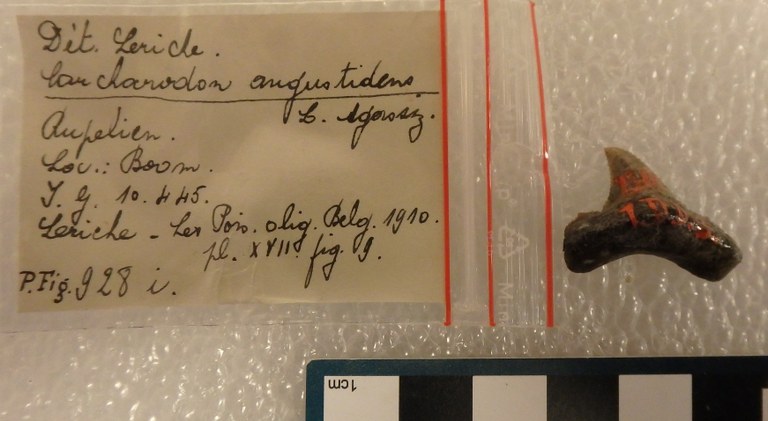 Dét. Leriche.
Carcharodon angustidens
L. Agassiz.
Rupélien.
Loc.: Boom.
I. G. 10.445.
Leriche - Les Pois. olig. Belg. 1910.
pl. XVII. fig. 9.
P. Fig. 928 i.
1cm